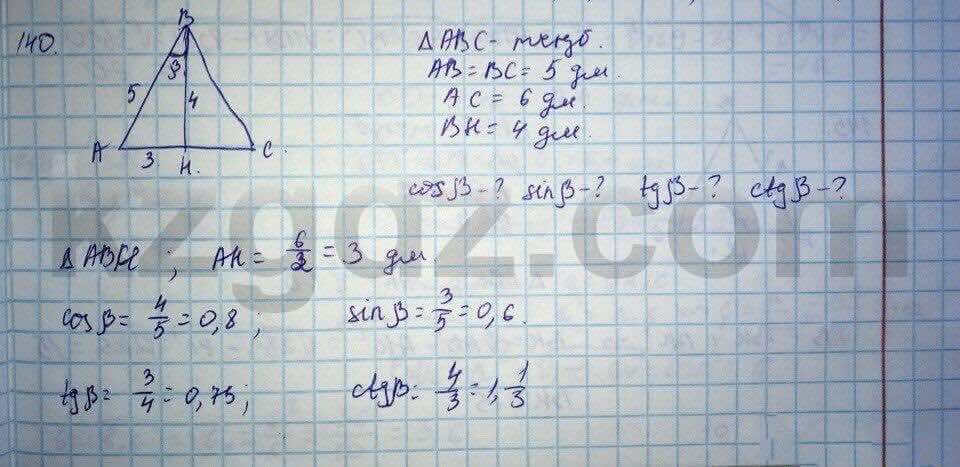 140.
B
β
5
4
A
3
H.
C.
Δ ABC - теңдб.
AB = BC = 5 дм.
AC = 6 дм.
BH = 4 дм.
cosβ - ? sinβ - ? tgβ - ? ctgβ - ?
kzgdz.com
Δ ABH ; AH = 6/2 = 3 дм.
cosβ = 4/5 = 0,8 ; sinβ = 3/5 = 0,6.
tgβ = 3/4 = 0,75 ; ctgβ = 4/3 = 1, 1/3